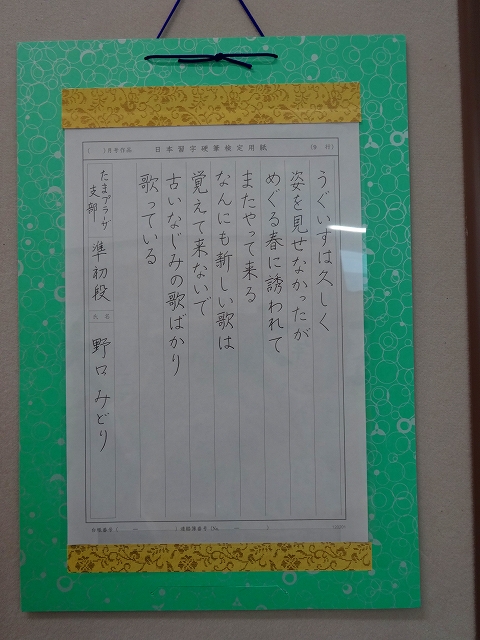 (　)月号作品　日本習字硬筆検定用紙　(9　行)
うぐいすは久しく
姿を見せなかったが
めぐる春に誘われて
またやって来る
なんにも新しい歌は
覚えて来ないで
古いなじみの歌ばかり
歌っている
たまプラーザ支部　準初段　氏名　野口みどり